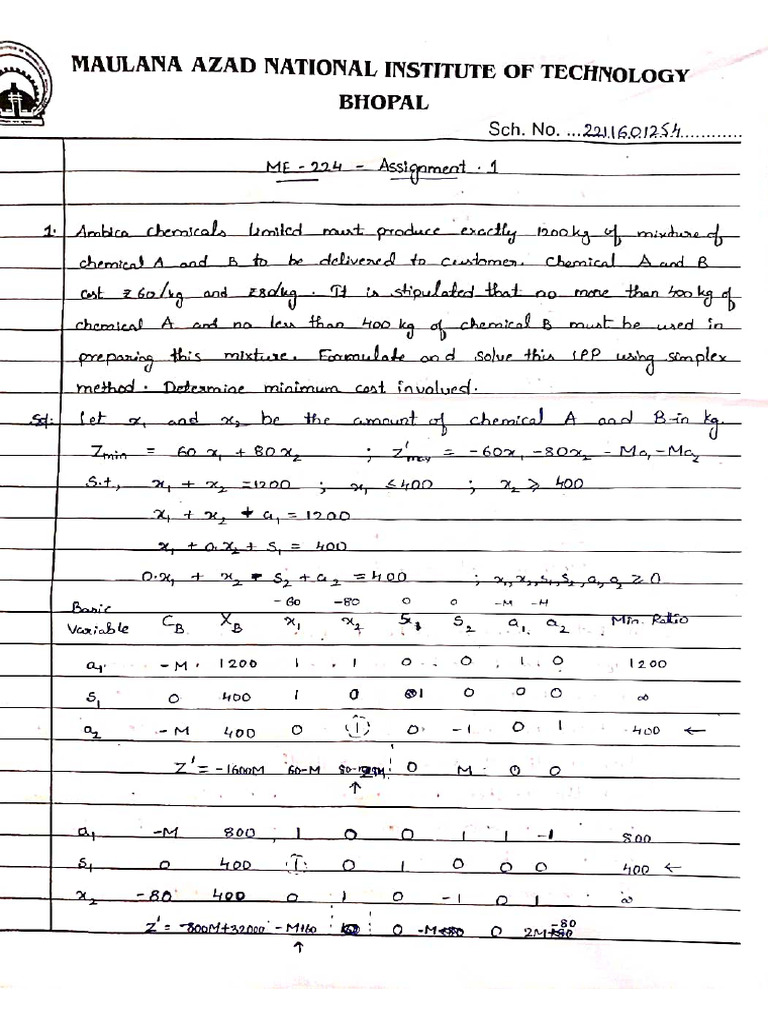 MAULANA AZAD NATIONAL INSTITUTE OF TECHNOLOGY
BHOPAL
Sch. No. ...2211601254............
ME-224 - Assignment. 1
1. Ambica chemicals limited must produce exactly 1200kg of mixture of
chemical A and B to be delivered to customer. Chemical A and B
cost ₹60/kg and ₹80/kg. It is stipulated that no more than 400kg of
chemical A and no less than 400 kg of chemical B must be used in
preparing this mixture. Formulate and solve this LPP using simplex
method. Determine minimum cost involved.
Sol: Let x₁ and x₂ be the amount of chemical A and B in kg.
Zmin = 60x₁ + 80x₂ ; Z'max = -60x₁ -80x₂ - Ma₁ -Ma₂
S.t, x₁ + x₂ = 1200 ; x₁ ≤ 400 ; x₂ ≥ 400
x₁ + x₂ + a₁ = 1200
x₁ + 0.x₂ + S₁ = 400
0.x₁ + x₂ - S₂ + a₂ = 400 ; x₁, x₂, s₁, s₂, a₁, a₂ ≥ 0
-60 -80 0 0 -M -M
Basic Variable C_B X_B x₁ x₂ S₁ S₂ a₁ a₂ Min. Ratio
a₁ -M 1200 1 1 0 0 1 0 1200
S₁ 0 400 1 0 1 0 0 0 ∞
a₂ -M 400 0 1 0 -1 0 1 400 ←
Z' = -1600M 60-M 0 M 0 0
↑
a₁ -M 800 1 0 0 1 1 -1 800
S₁ 0 400 1 0 1 0 0 0 400 ←
x₂ -80 400 0 1 0 -1 0 1 ∞
Z' = -800M+32000 -M+60 0 0
↑